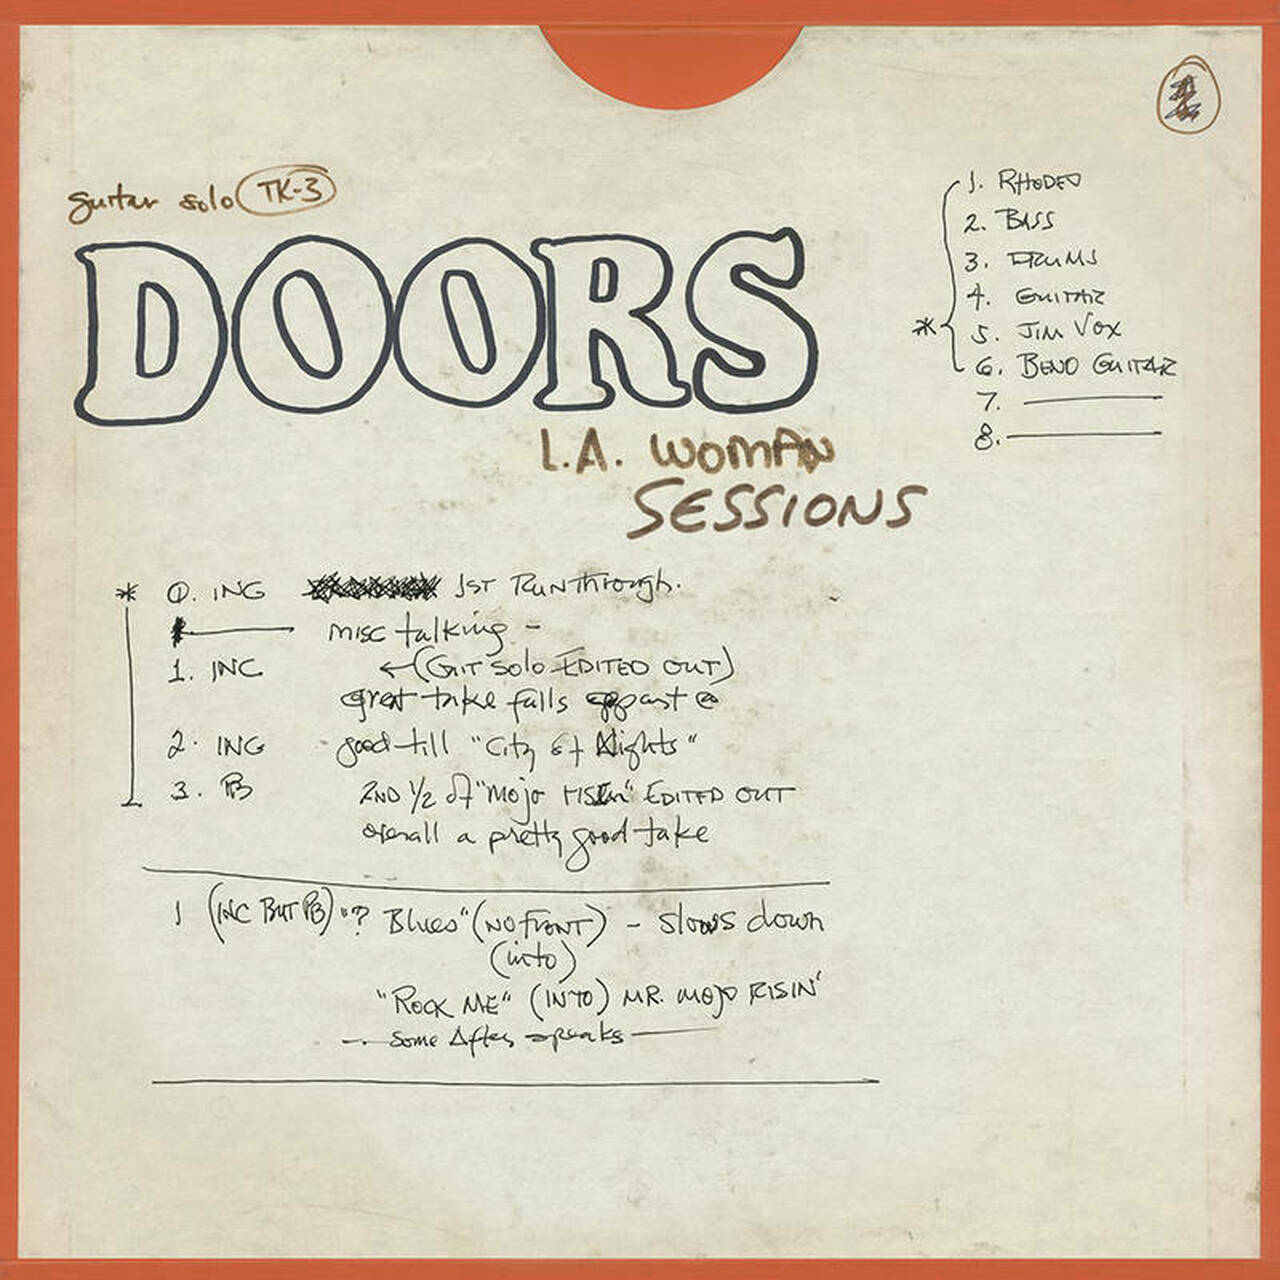 guitar solo TK-3
DOORS
L.A. WOMAN
SESSIONS
1. RHODES
2. BASS
3. DRUMS
4. GUITAR
* 5. JIM VOX
6. BENO GUITAR
7.
8.
* 0. INC 1ST RUNThrough.
misc talking -
1. INC ←(GUIT SOLO EDITED OUT)
great take falls appart @
2. INC good till "City of Nights"
3. PB 2ND 1/2 of "Mojo RISIn" EDITED OUT
overall a pretty good take
1 (INC BUT PB) "? Blues" (NO FRONT) - Slows down
(into)
"ROCK ME" (INTO) MR. MOJO RISIN'
Some After speaks